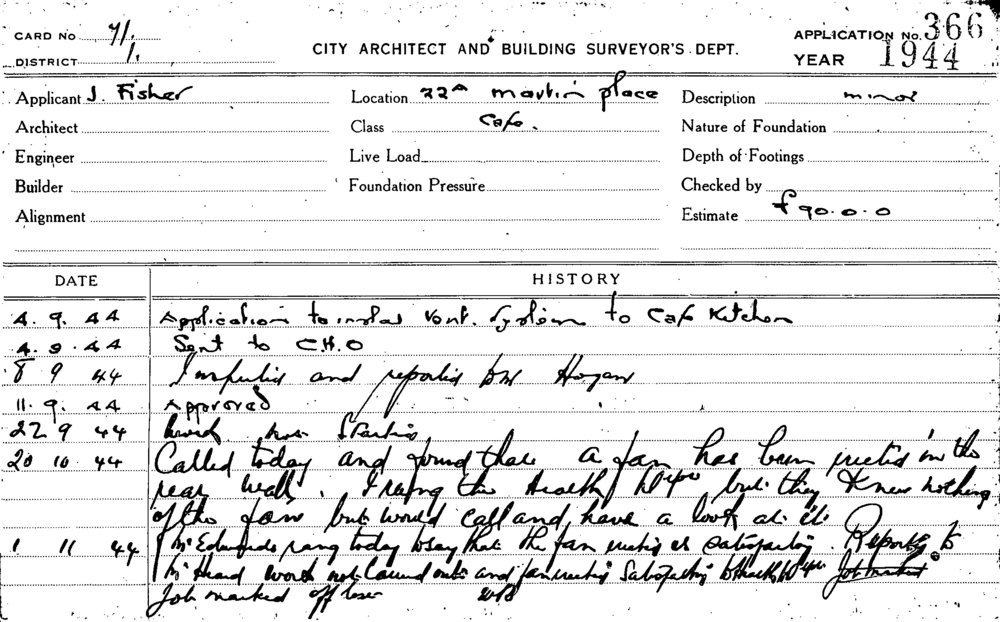 CARD No 7/1.
DISTRICT 1.
CITY ARCHITECT AND BUILDING SURVEYOR'S DEPT.
APPLICATION No. 366
YEAR 1944
Applicant J. Fisher
Location 22A Martin place
Description minor
Architect
Class Cafe.
Nature of Foundation
Engineer
Live Load
Depth of Footings
Builder
Foundation Pressure
Checked by
Alignment
Estimate £90.0.0
DATE HISTORY
4. 9. 44 Application to instal Vent. System to Cafe Kitchen
4. 9. 44 Sent to C.H.O
8 9 44 Inspected and reported Hogan
11. 9. 44 Approved
22 9 44 Work not Started
20 10 44 Called today and found there a fan has been erected in the
rear wall. I rang the Health but they Knew nothing
of the fan but would call and have a look at it.
1 11 44 Mr Edwards rang today to say that the fan erected is satisfactory. Report to
Mr Heard work not carried out and fan erected Satisfactory to Health Job marked
Job marked off